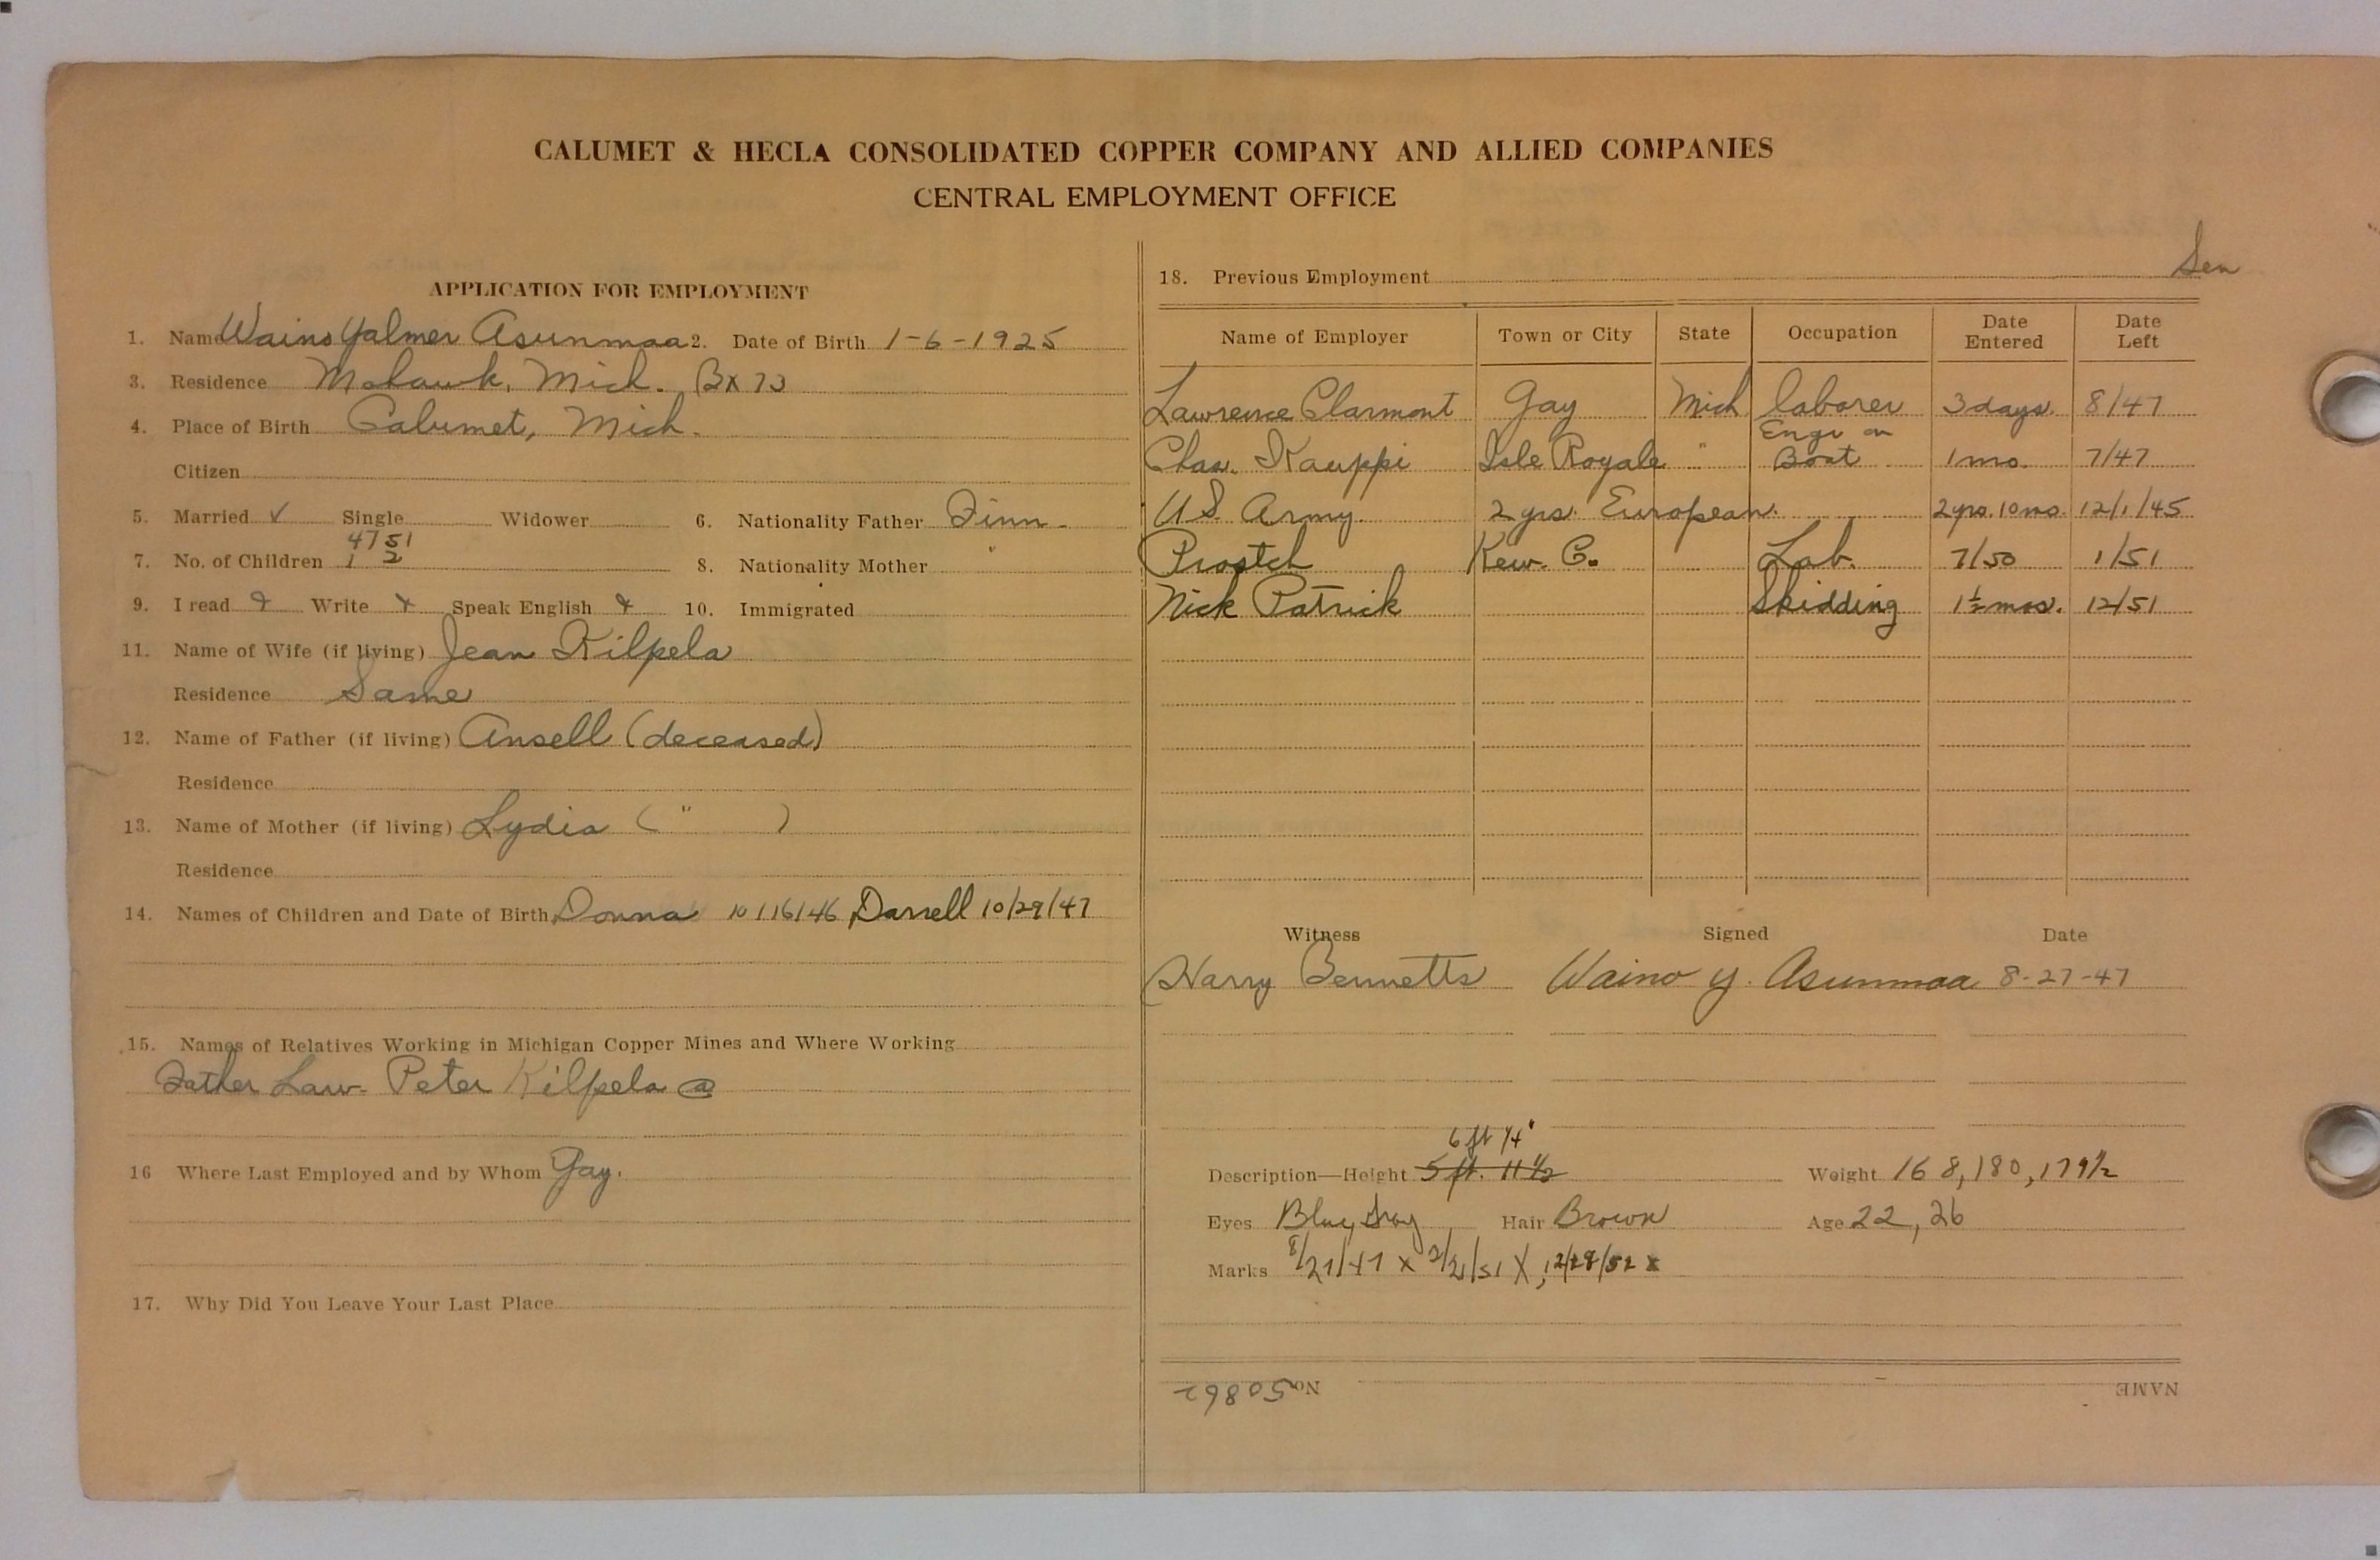 CALUMET & HECLA CONSOLIDATED COPPER COMPANY AND ALLIED COMPANIES
CENTRAL EMPLOYMENT OFFICE
APPLICATION FOR EMPLOYMENT
1. Name Waino Yalmer Asunmaa 2. Date of Birth 1-6-1925
3. Residence Mohawk, Mich. Bx 73
4. Place of Birth Calumet, Mich.
Citizen
5. Married ✓ Single Widower 6. Nationality Father Finn.
47 51
7. No. of Children 1 2 8. Nationality Mother "
9. I read x Write x Speak English x 10. Immigrated
11. Name of Wife (if living) Jean Kilpela
Residence Same
12. Name of Father (if living) Ansell (deceased)
Residence
13. Name of Mother (if living) Lydia ( " )
Residence
14. Names of Children and Date of Birth Donna 10/16/46 Darrell 10/29/47
15. Names of Relatives Working in Michigan Copper Mines and Where Working
Father Law- Peter Kilpela
16 Where Last Employed and by Whom Gay.
17. Why Did You Leave Your Last Place
18. Previous Employment Sen
Name of Employer Town or City State Occupation Date Entered Date Left
Lawrence Clarmont Gay Mich laborer 3 days. 8/47
Chas. Kauppi Isle Royale " Engr on Boat 1 mo. 7/47
U.S. Army. 2 yrs. European. 2 yrs. 10 mo. 12/1/45
Prostch Kew. Co. Lab. 7/50 1/51
Nick Patrick Skidding 1½ mos. 12/51
Witness Signed Date
Harry Bennetts Waino Y. Asunmaa 8-27-47
6 ft 1/4"
Description—Height 5 ft. 11 1/2 Weight 168, 180, 179½
Eyes Blue, Gray Hair Brown Age 22, 26
Marks 8/27/47 x 2/21/51 X, 12/28/52 x
No 50862 NAME